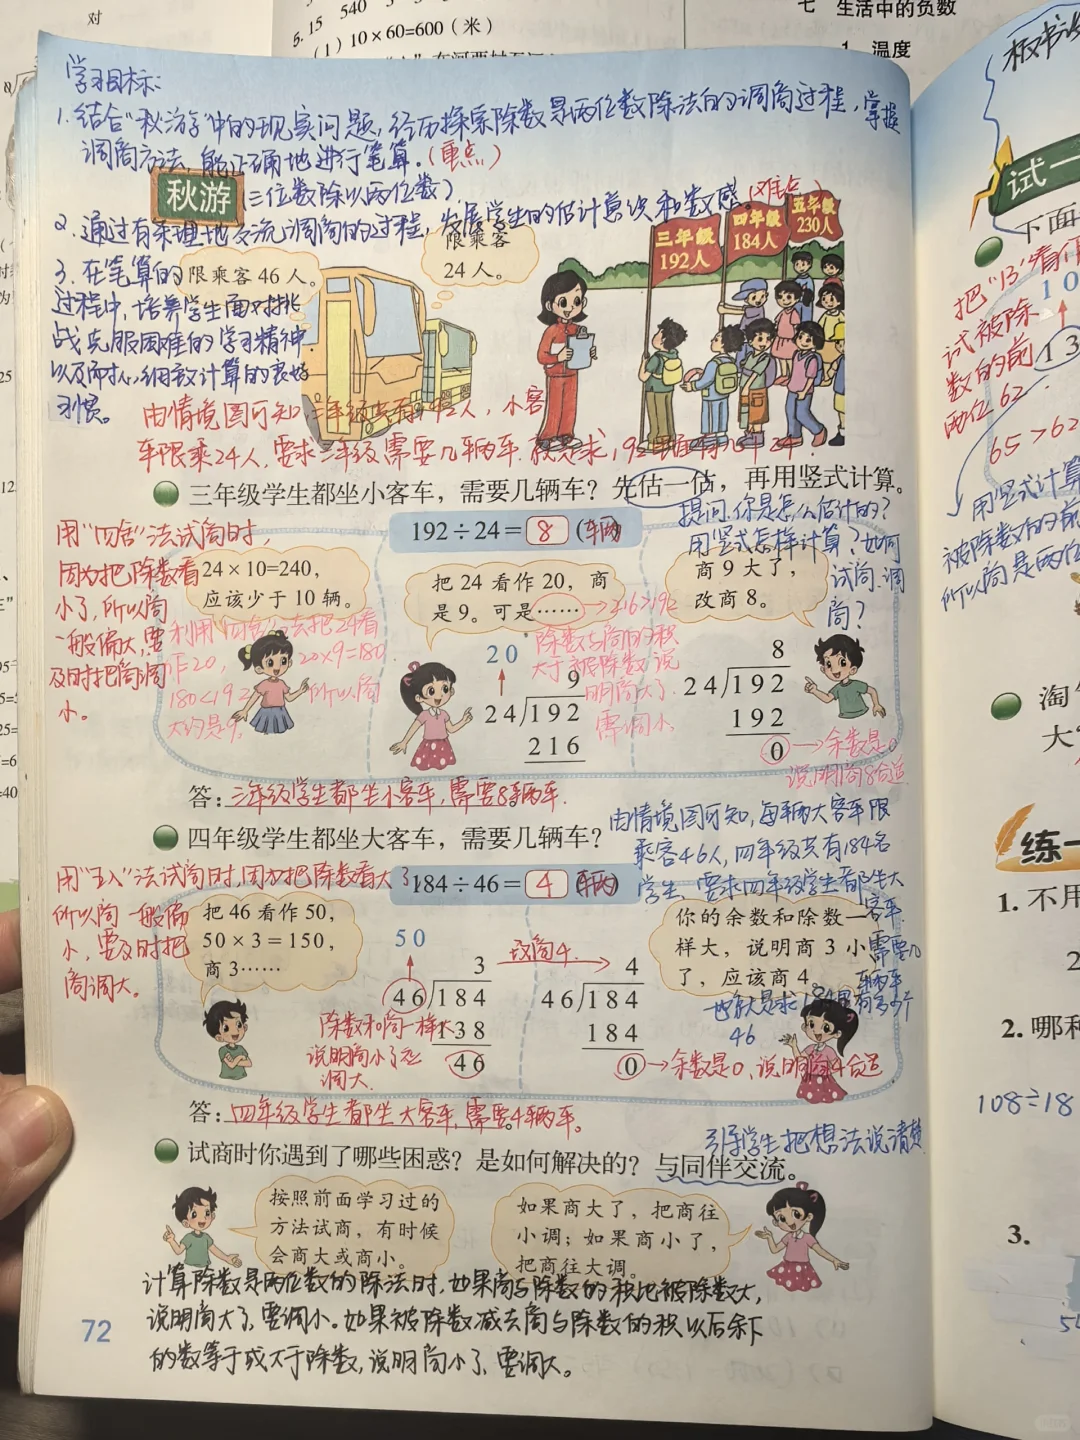 对
15 540
5.
(1) 10×60=600(米)
七 生活中的负数
1 温度
学习目标:
1.结合“秋游”中的现实问题,经历探索除数是两位数除法的调商过程,掌握
调商方法,能正确地进行笔算。(重点)
秋游
(三位数除以两位数)
2.通过有条理地交流调商的过程,发展学生的估计意识和数感。(难点)
3.在笔算的
过程中,培养学生面对挑
战克服困难的学习精神
以及耐心细致计算的良好
习惯。
限乘客 46 人。
限乘客
24 人。
三年级
192人
四年级
184人
五年级
230人
由情境图可知三年级共有192人,小客
车限乘24人,要求三年级需要几辆车.就是求192里面有几个24.
三年级学生都坐小客车,需要几辆车?先估一估,再用竖式计算。
提问.你是怎么估计的?
用竖式怎样计算?如何
试商.调
商?
用“四舍”法试商时,
因为把除数看
小了,所以商
一般偏大,要
及时把商调
小。
192÷24=8(辆)
24×10=240,
应该少于 10 辆。
利用“四舍”法把24看
作20, 20×9=180
180<192 所以商
大约是9.
把 24 看作 20,商
是 9。可是……
→216>192
除数与商的积
大于被除数说
明商大了.
需调小.
20
9
24/192
216
商 9 大了,
改商 8。
8
24/192
192
0
→余数是0
说明商8合适
答:三年级学生都坐小客车,需要8辆车.
四年级学生都坐大客车,需要几辆车?
由情境图可知,每辆大客车限
乘客46人,四年级共有184名
学生,要求四年级学生都坐大
客车.
需要几
辆车
也就是求184里有多少个
46
用“五入”法试商时,因为把除数看大了
所以商一般偏
小,要及时把
商调大。
184÷46=4(辆)
把 46 看作 50,
50×3=150,
商 3……
50
3
46/184
138
46
除数和商一样大
说明商小了应
调大.
改商4.
4
46/184
184
0
→余数是0,说明商4合适
你的余数和除数一
样大,说明商 3 小
了,应该商 4。
答:四年级学生都坐大客车,需要4辆车。
引导学生把想法说清楚.
试商时你遇到了哪些困惑?是如何解决的?与同伴交流。
按照前面学习过的
方法试商,有时候
会商大或商小。
如果商大了,把商往
小调;如果商小了,
把商往大调。
计算除数是两位数的除法时,如果商与除数的积比被除数大,
说明商大了,要调小.如果被除数减去商与除数的积以后余下
的数等于或大于除数,说明商小了,要调大。
72
板书设
试一
下面
把“13”看作
试被除
数的前
两位62
65>62
10
13
用竖式计算
被除数的前
所以商是两位
淘气
大“
练一
1. 不用
2
2. 哪种
108÷18
3.